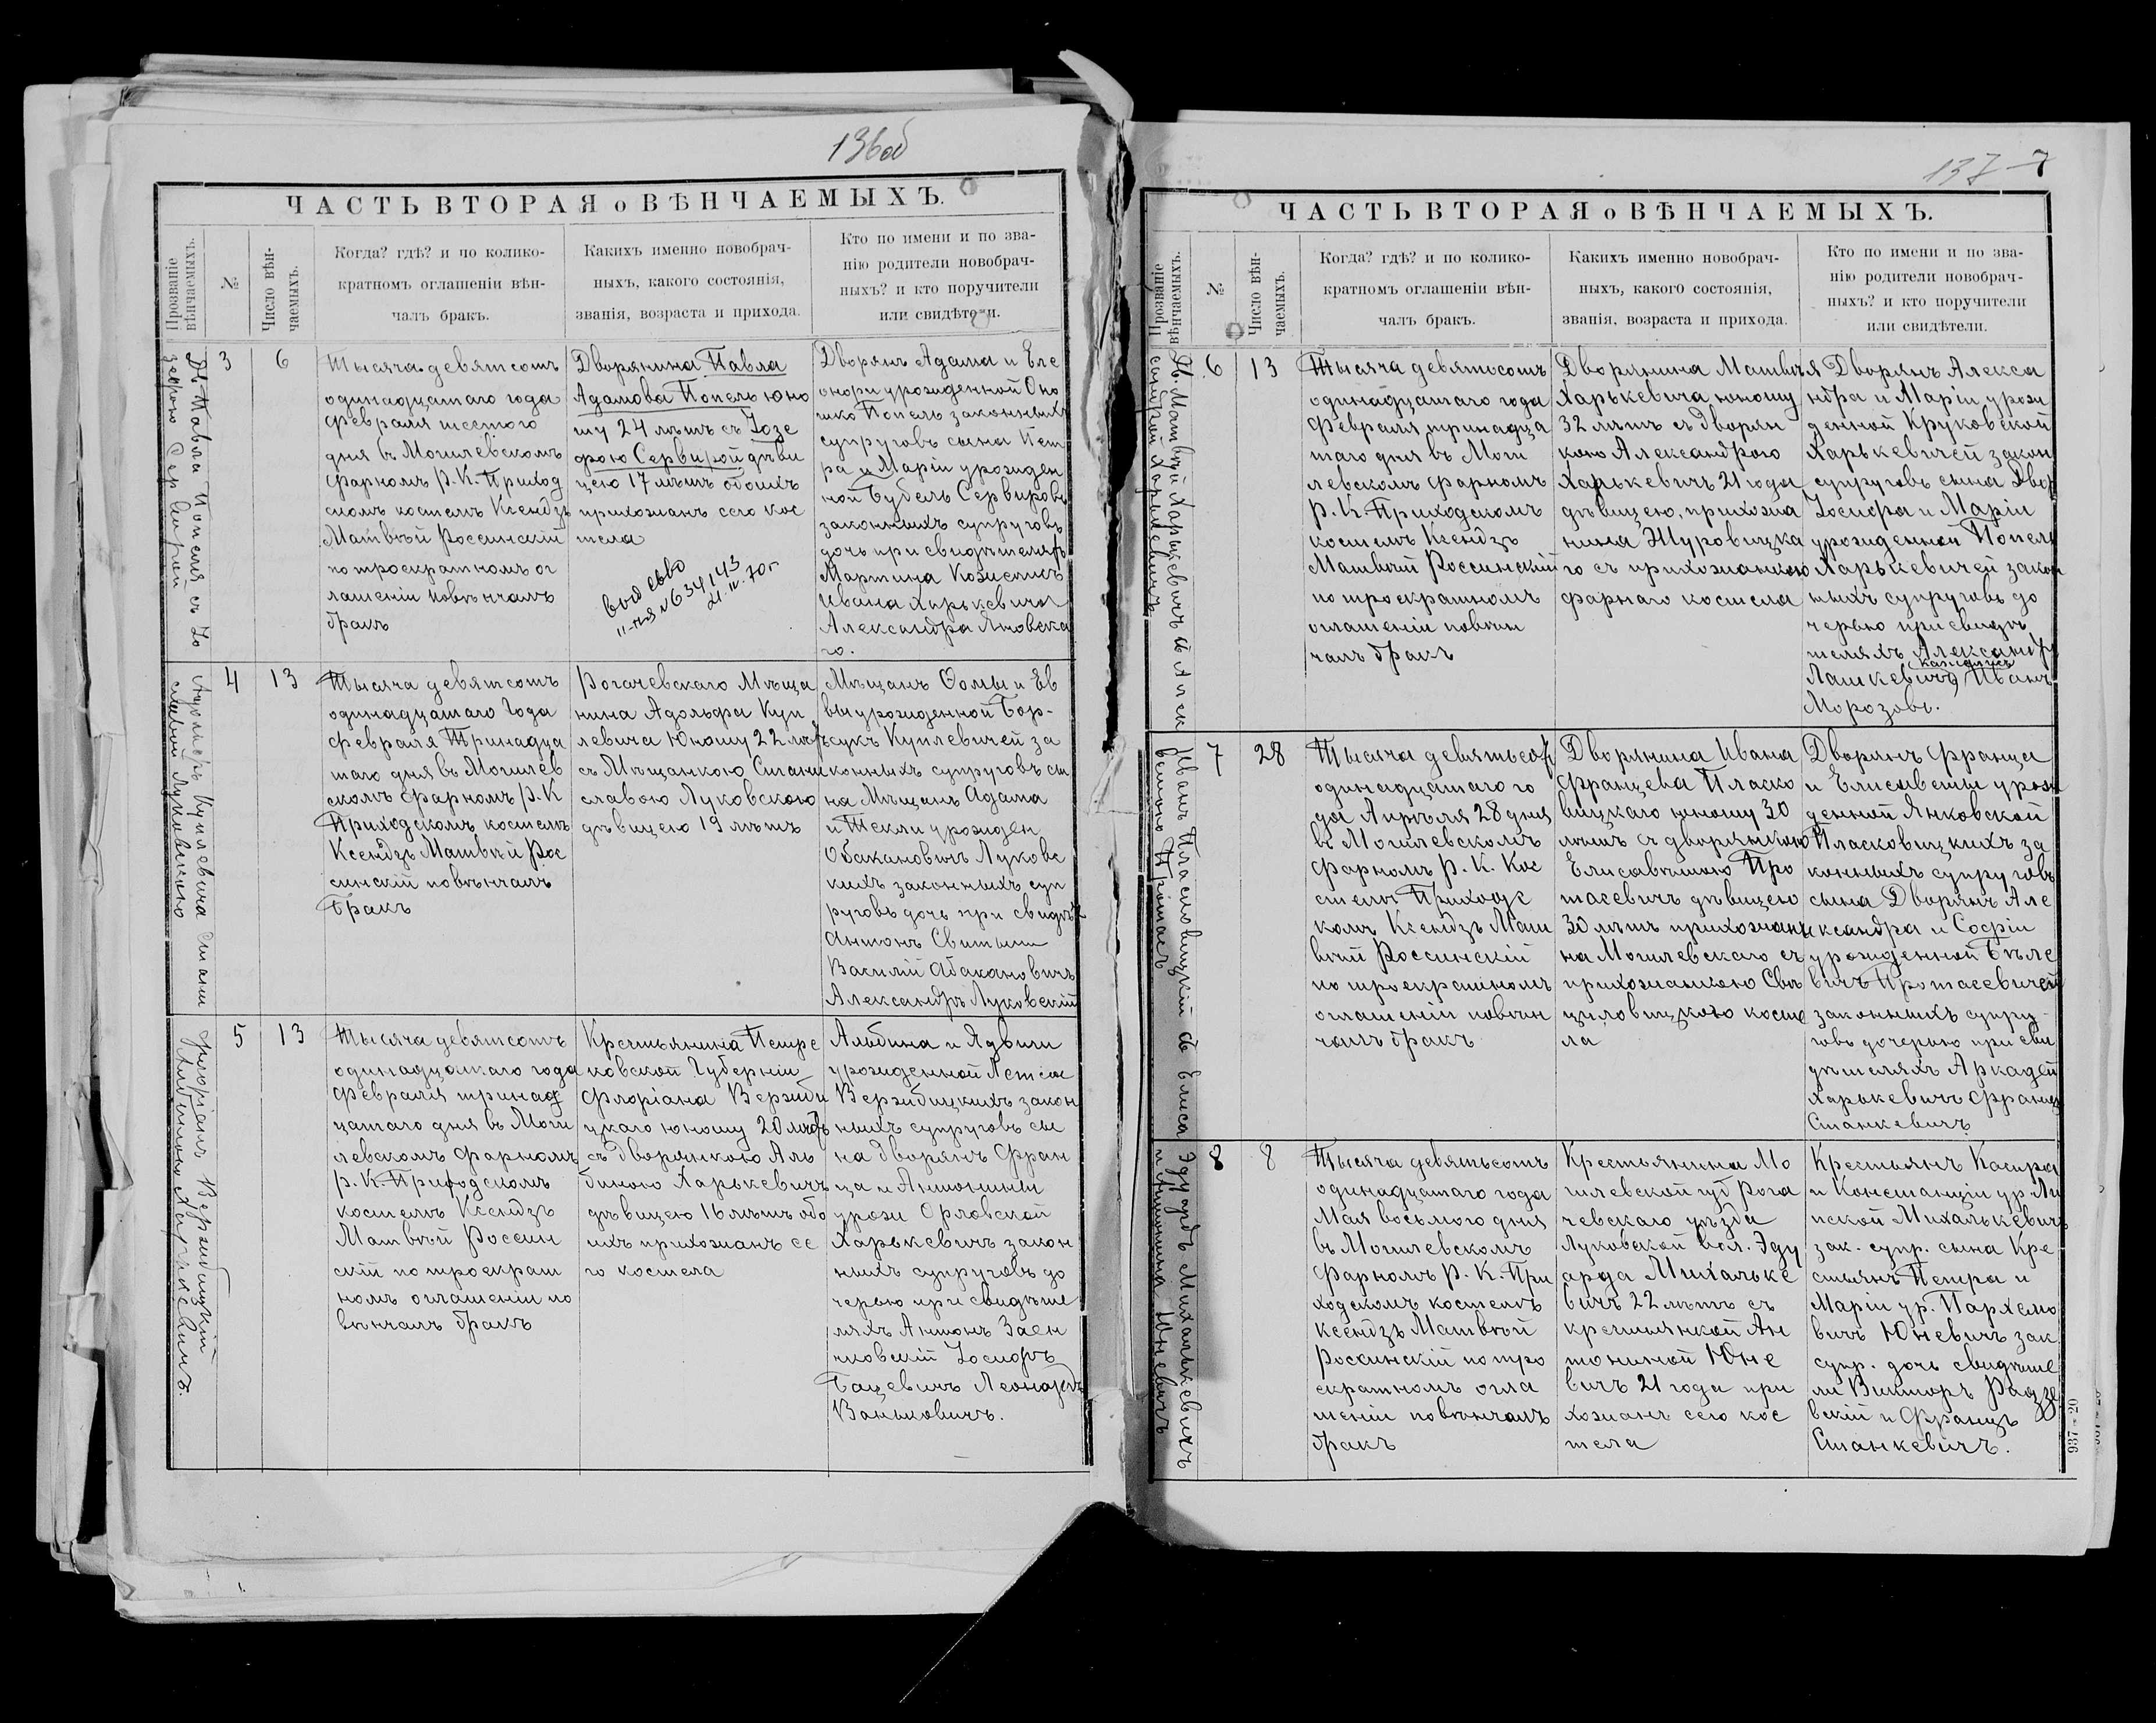 136об
ЧАСТЬ ВТОРАЯ о ВѢНЧАЕМЫХЪ.
Прозваніе
вѣнчаемыхъ.
№
Число вѣн-
чаемыхъ.
Когда? гдѣ? и по колико-
кратномъ оглашеніи вѣн-
чалъ бракъ.
Какихъ именно новобрач-
ныхъ, какого состоянія,
званія, возраста и прихода.
Кто по имени и по зва-
нію родители новобрач-
ныхъ? и кто поручители
или свидѣтели.
Дв. Павла Попеля съ Іо
зефою Сервирой
3
6
Тысяча девятсотъ
одинадцатаго года
Февраля шестого
дня въ Могилевскомъ
фарномъ Р. К. Приход
скомъ костелѣ Ксендзъ
Матвѣй Россинскій
по троекратномъ ог
лашеніи повѣнчалъ
бракъ
Дворянина Павла
Адамова Попель юно
шу 24 лѣтъ съ Іозе
фою Сервирой дѣви
цею 17 лѣтъ обоихъ
прихожанъ сего кос
тела
выд свво
II-мя № 634143
21.IV.70 г
Дворянъ Адама и Еле
оноры урожденной Оно
шко Попель законныхъ
супруговъ сына Пет
ра и Маріи урожден
ной Бубель Сервировъ
законныхъ супруговъ
дочь при свидѣтеляхъ
Мартина
Ивана Харькевича
Александра Яновска
го.
Адольфъ Куплевича Стани
славой Луковскою
4
13
Тысяча девятсотъ
одинадцатаго Года
Февраля Тринадца
таго дня въ Могилев
скомъ фарномъ Р. К
Приходскомъ костелѣ
Ксендзъ Матвѣй Рос
синскій повѣнчалъ
бракъ
Рогачевскаго Мѣща
нина Адольфа Куп
левича Юношу 22 лѣтъ
съ Мѣщанкою Стани
славою Луковскою
дѣвицею 19 лѣтъ
Мѣщанъ Ѳомы и Ев
вы урожденной Бор-
сукъ Куплевичей за
конныхъ супруговъ сы
на Мѣщанъ Адама
и Текли урожден
Абакановичъ Луковс
кихъ законныхъ суп
руговъ дочь при свидѣт
Антонъ
Василій Абакановичъ
Александръ Луковскій
Флоріанъ Вержбицкій
Альбиною Харькевичъ.
5
13
Тысяча девятсотъ
одинадцатаго года
Февраля тринад
цатаго дня въ Моги
левскомъ фарномъ
Р. К. Приходскомъ
костелѣ Ксендзъ
Матвѣй Россин
скій по троекрат
номъ оглашеніи по
вѣнчалъ бракъ
Крестьянина
ковской Губерніи
Флоріана Вержби
цкаго юношу 20 лѣтъ
съ дворянкою Аль
биною Харькевичъ
дѣвицею 16 лѣтъ обо
ихъ прихожанъ се
го костела
Альбина и Ядвиги
урожденной
Вержбицкихъ закон
ныхъ супруговъ сы
на дворянъ Фран
ца и Антонины
урожд Орловской
Харькевичъ закон
ныхъ супруговъ до
черью при свидѣте
ляхъ Антонъ Заен
чковскій Іосифъ
Бацевичъ Леонардъ
Ваньковичъ.
137 7
ЧАСТЬ ВТОРАЯ о ВѢНЧАЕМЫХЪ.
Прозваніе
вѣнчаемыхъ.
№
Число вѣн-
чаемыхъ.
Когда? гдѣ? и по колико-
кратномъ оглашеніи вѣн-
чалъ бракъ.
Какихъ именно новобрач-
ныхъ, какого состоянія,
званія, возраста и прихода.
Кто по имени и по зва-
нію родители новобрач-
ныхъ? и кто поручители
или свидѣтели.
Дв. Матвѣй Харькевичъ съ Алек
сандрой Харькевичъ
6
13
Тысяча девятьсотъ
одинадцатаго года
Февраля тринадца
таго дня въ Моги
левскомъ фарномъ
Р. К. Приходскомъ
костелѣ Ксендзъ
Матвѣй Россинскій
по троекратномъ
оглашеніи повѣн
чалъ бракъ
Дворянина Матвѣя
Харькевича юношу
32 лѣтъ съ дворян
кою Александрою
Харькевичъ 21 года
дѣвицею, прихожа
нина Журовицка
го съ прихожанкою
фарнаго костела
Дворянъ Алекса
ндра и Маріи урож
денной Круковской
Харькевичей закон
супруговъ сына Двор
Іосифа и Маріи
урожденной Попель
Харькевичей закон
ныхъ супруговъ до
черью при свидѣ
теляхъ Александръ
Лашкевичъ, Иванъ
Морозовъ.
Иванъ Пласковицкій съ Елиса
ветою Протасевичъ
7
28
Тысяча девятьсотъ
одинадцатаго го
да Апрѣля 28 дня
въ Могилевскомъ
фарномъ Р. К. Кос
телѣ Приходс
комъ Ксендзъ Мат
вѣй Россинскій
по троекратномъ
оглашеніи повѣн
чалъ бракъ
Дворянина Ивана
Францева Пласко
вицкаго юношу 30
лѣтъ съ дворянкою
Елисаветою Про
тасевичъ дѣвицею
30 лѣтъ прихожани
на Могилевскаго съ
прихожанкою Свѣ
циловицкою косте
ла
Дворянъ Франца
и Елисаветы урож
денной Янковской
Пласковицкихъ за
конныхъ супруговъ
сына Дворянъ Але
ксандра и Софіи
урожденной Бѣле
вичъ Протасевичей
законныхъ супру-
говъ дочерью при сви
дѣтеляхъ Аркадей
Харькевичъ Францъ
Станкевичъ
Эдуардъ Михалькевичъ
и Антонина Юневичъ
8
8
Тысяча девятьсотъ
одинадцатаго года
Мая восьмого дня
въ Могилевскомъ
фарномъ Р. К. При
ходскомъ костелѣ
Ксендзъ Матвѣй
Россинскій по тро
екратномъ огла
шеніи повѣнчалъ
бракъ
Крестьянина Мо
гилевской губ Рога
чевскаго уѣзда
Луковской вол. Эду
арда Михальке
вичъ 22 лѣтъ съ
крестьянкой Ан
тониной Юне
вичъ 21 года при
хожанъ сего кос
тела
Крестьянъ Каспра
и Констанціи ур Ли
пской Михалькевичъ
зак. супр. сына Кре
стьянъ Петра и
Маріи ур. Пархимо
вичъ Юневичъ зак
супр. дочь свидѣте
ли Викторъ Радзе
вскій и Францъ
Станкевичъ.
937 — 20